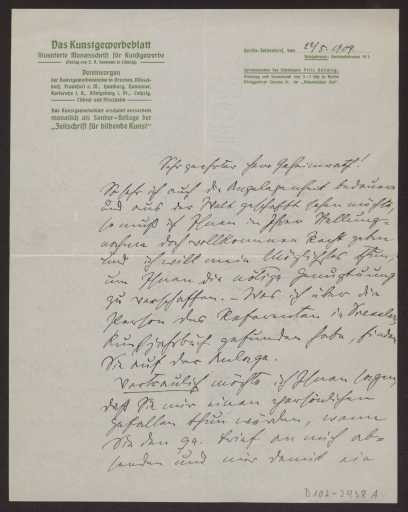 Das Kunstgewerbeblatt
Illustrierte Monatsschrift für Kunstgewerbe
(Verlag von E. A. Seemann in Leipzig)
Vereinsorgan
der Kunstgewerbevereine in Dresden, Düssel-
dorf, Frankfurt a. M., Hamburg, Hannover,
Karlsruhe i. B., Königsberg i. Pr., Leipzig,
Pforzheim
Das Kunstgewerbeblatt erscheint ausserdem
monatlich als Sonder-Beilage der
„Zeitschrift für bildende Kunst“
Berlin-Zehlendorf, den 24/5. 1909.
Sehr geehrter Herr Geheimrath!
So sehr ich auch die Angelegenheit bedauere
und aus der Welt geschafft sehen möchte,
so muß ich Ihnen in Ihrer Stellung-
nahme doch vollkommen Recht geben
und ich will mein Möglichstes thun,
um Ihnen die nötige Genugtuung
zu verschaffen. – Was ich über die
Person des Referenten im Dresdner
Kunstjahrbuch gefunden habe, finden
Sie auf der Anlage.
Vertraulich möchte ich Ihnen sagen,
daß Sie mir einen persönlichen
Gefallen thun würden, wenn
Sie den Brief an mich ab-
senden und mir damit ein
D 102-2938 A